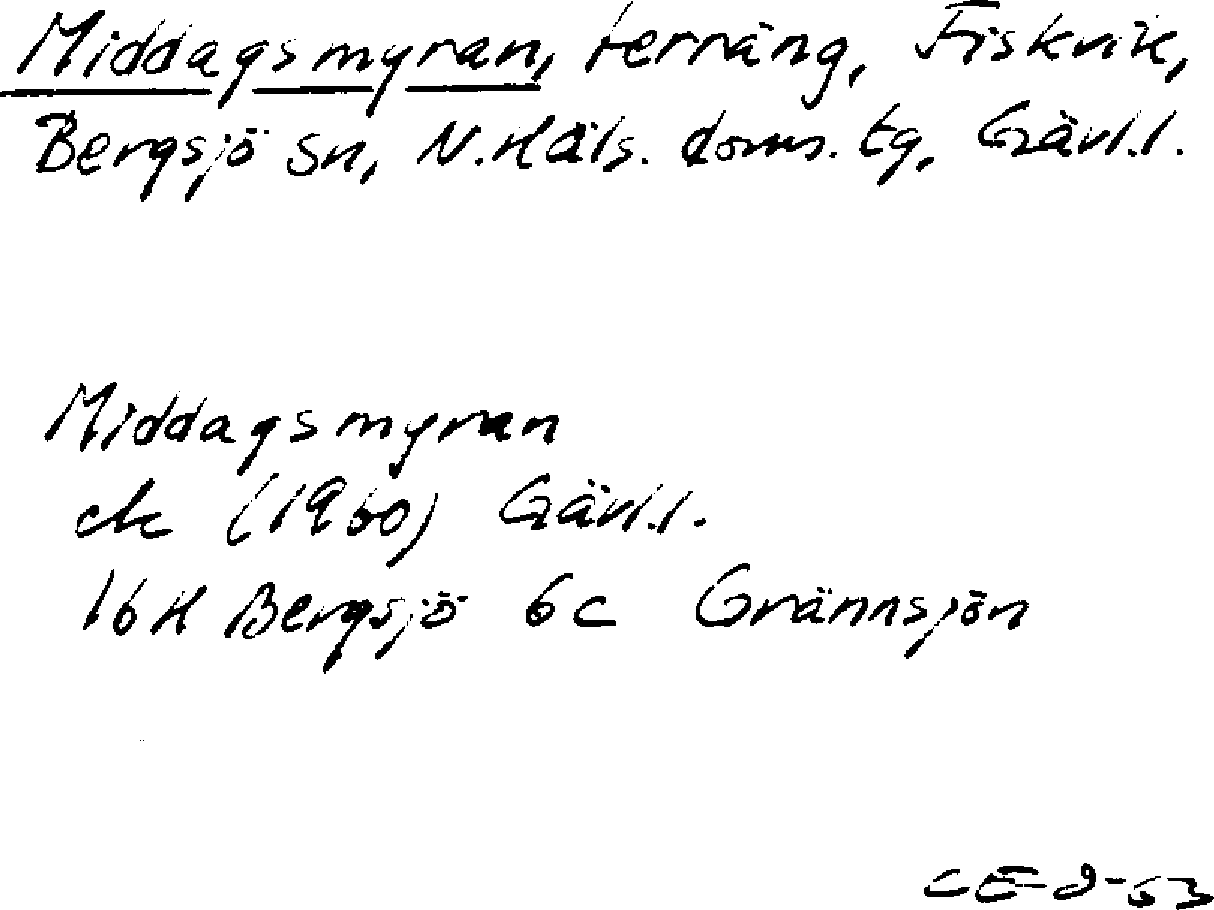 Middagsmyran, terräng, Fiskvik,
Bergsjö sn, N. Häls. doms. tg, Gävl.l.
Middagsmyran
ek (1960) Gävl.l.
16H Bergsjö 6c Grännsjön
CE-9-53